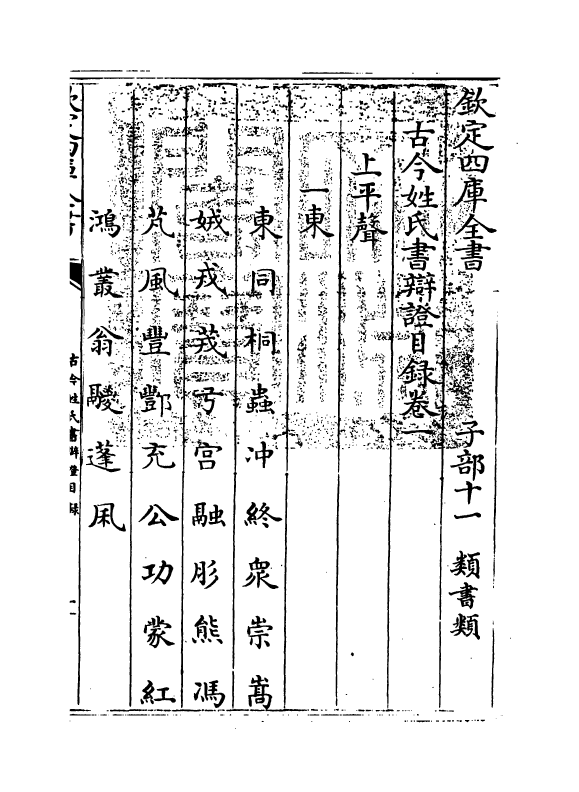 欽定四庫全書　子部十一　類書類
古今姓氏書辯證目録卷一
上平聲
一東
東同桐蟲沖終衆崇嵩
娀戎茙弓宮融肜熊馮
芃風豐酆充公功蒙紅
鴻叢翁騣蓬凩
欽定四庫全書
古今姓氏書辯證目録
一